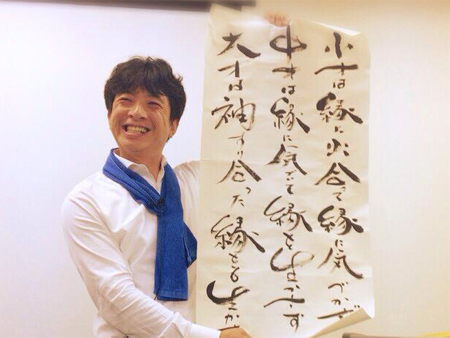 小才は縁に出合て縁に気づかず
中才は縁に気づて縁を生かさず
大才は袖すり合った縁をも生かす